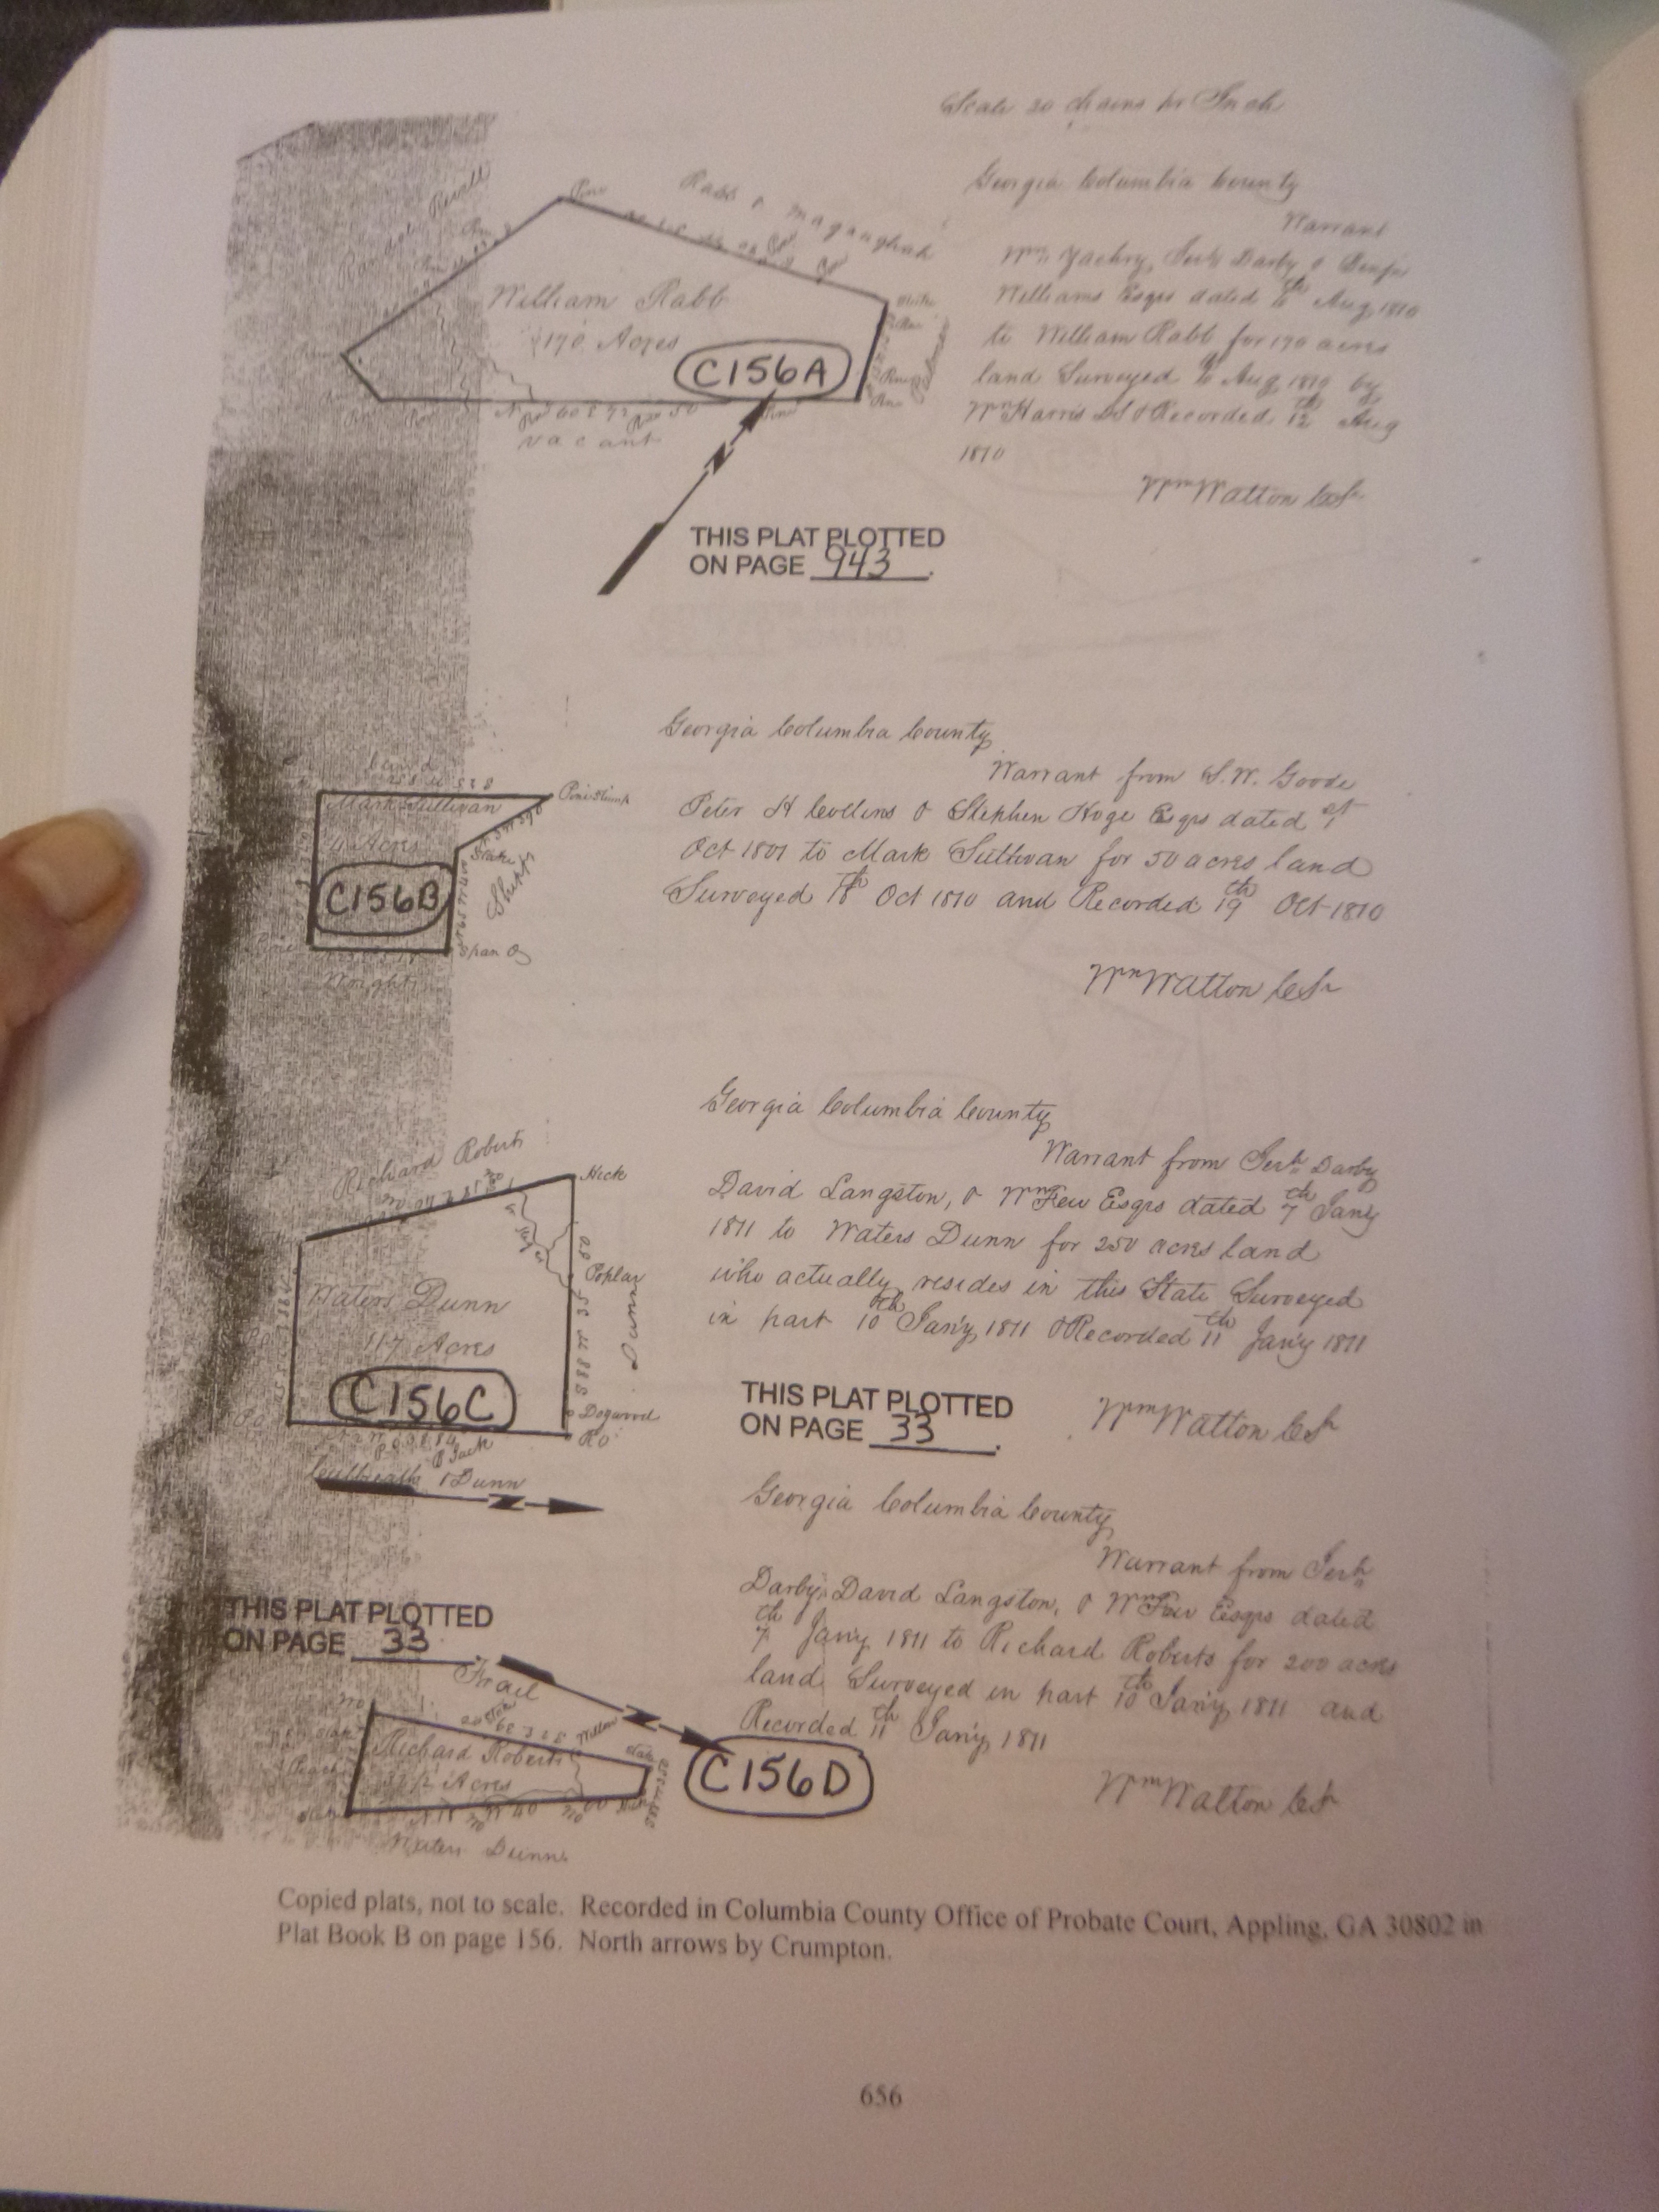 Scale 20 chains pr Inch
Georgia Columbia County
Warrant
Wm Zachry, Darby & Benja
Williams Esqrs dated Aug 1810
to William Rabb for 170 acres
land Surveyed Aug 1810 by
Wm Harris DS & Recorded 12th Aug
1810
Wm Walton CS
Randal
Pine
Rabb &
William Rabb
170 Acres
C156A
Pine
vacant
N
THIS PLAT PLOTTED
ON PAGE 943.
Georgia Columbia County
Warrant from S.W. Goode
Peter H Collins & Stephen Hoge Esqrs dated 1st
Oct 1807 to Mark Sullivan for 50 acres land
Surveyed 18th Oct 1810 and Recorded 19th Oct 1810
Wm Walton CS
Pine Stump
Mark Sullivan
4 Acres
Stake
C156B
Pine
Span O
Wright
Georgia Columbia County
Warrant from Darby
David Langston, & Wm Few Esqrs dated 7th Jany
1811 to Waters Dunn for 250 acres land
who actually resides in this State Surveyed
in part 10th Jany 1811 & Recorded 11th Jany 1811
Wm Walton CS
Richard Roberts
Hick
Poplar
Waters Dunn
117 Acres
Dunn
C156C
Dogwood
RO
& Dunn
N
THIS PLAT PLOTTED
ON PAGE 33.
Georgia Columbia County
Warrant from
Darby, David Langston, & Wm Few Esqrs dated
7th Jany 1811 to Richard Roberts for 200 acres
land Surveyed in part 10th Jany 1811 and
Recorded 11th Jany 1811
Wm Walton CS
THIS PLAT PLOTTED
ON PAGE 33.
N
Willow
Richard Roberts
Acres
C156D
Waters Dunn
Copied plats, not to scale. Recorded in Columbia County Office of Probate Court, Appling, GA 30802 in
Plat Book B on page 156. North arrows by Crumpton.
656